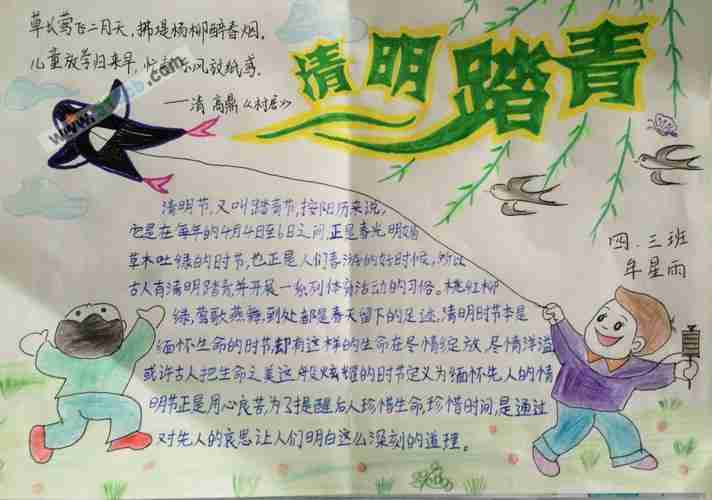 草长莺飞二月天,拂堤杨柳醉春烟。
儿童放学归来早,忙趁东风放纸鸢。
——清 高鼎《村居》
清明踏青
四.三班
牟星雨
清明节,又叫踏青节,按阳历来说,
它是在每年的4月4日至6日之间,正是春光明媚
草木吐绿的时节,也正是人们春游的好时候,所以
古人有清明踏青,并开展一系列体育活动的习俗。桃红柳
绿,莺歌燕舞,到处都是春天留下的足迹,清明时节本是
缅怀生命的时节,却有这样的生命在尽情绽放,尽情洋溢
或许古人把生命之美这般炫耀的时节定义为缅怀先人的清
明节正是用心良苦,为了提醒后人珍惜生命,珍惜时间,是通过
对先人的哀思让人们明白这么深刻的道理。